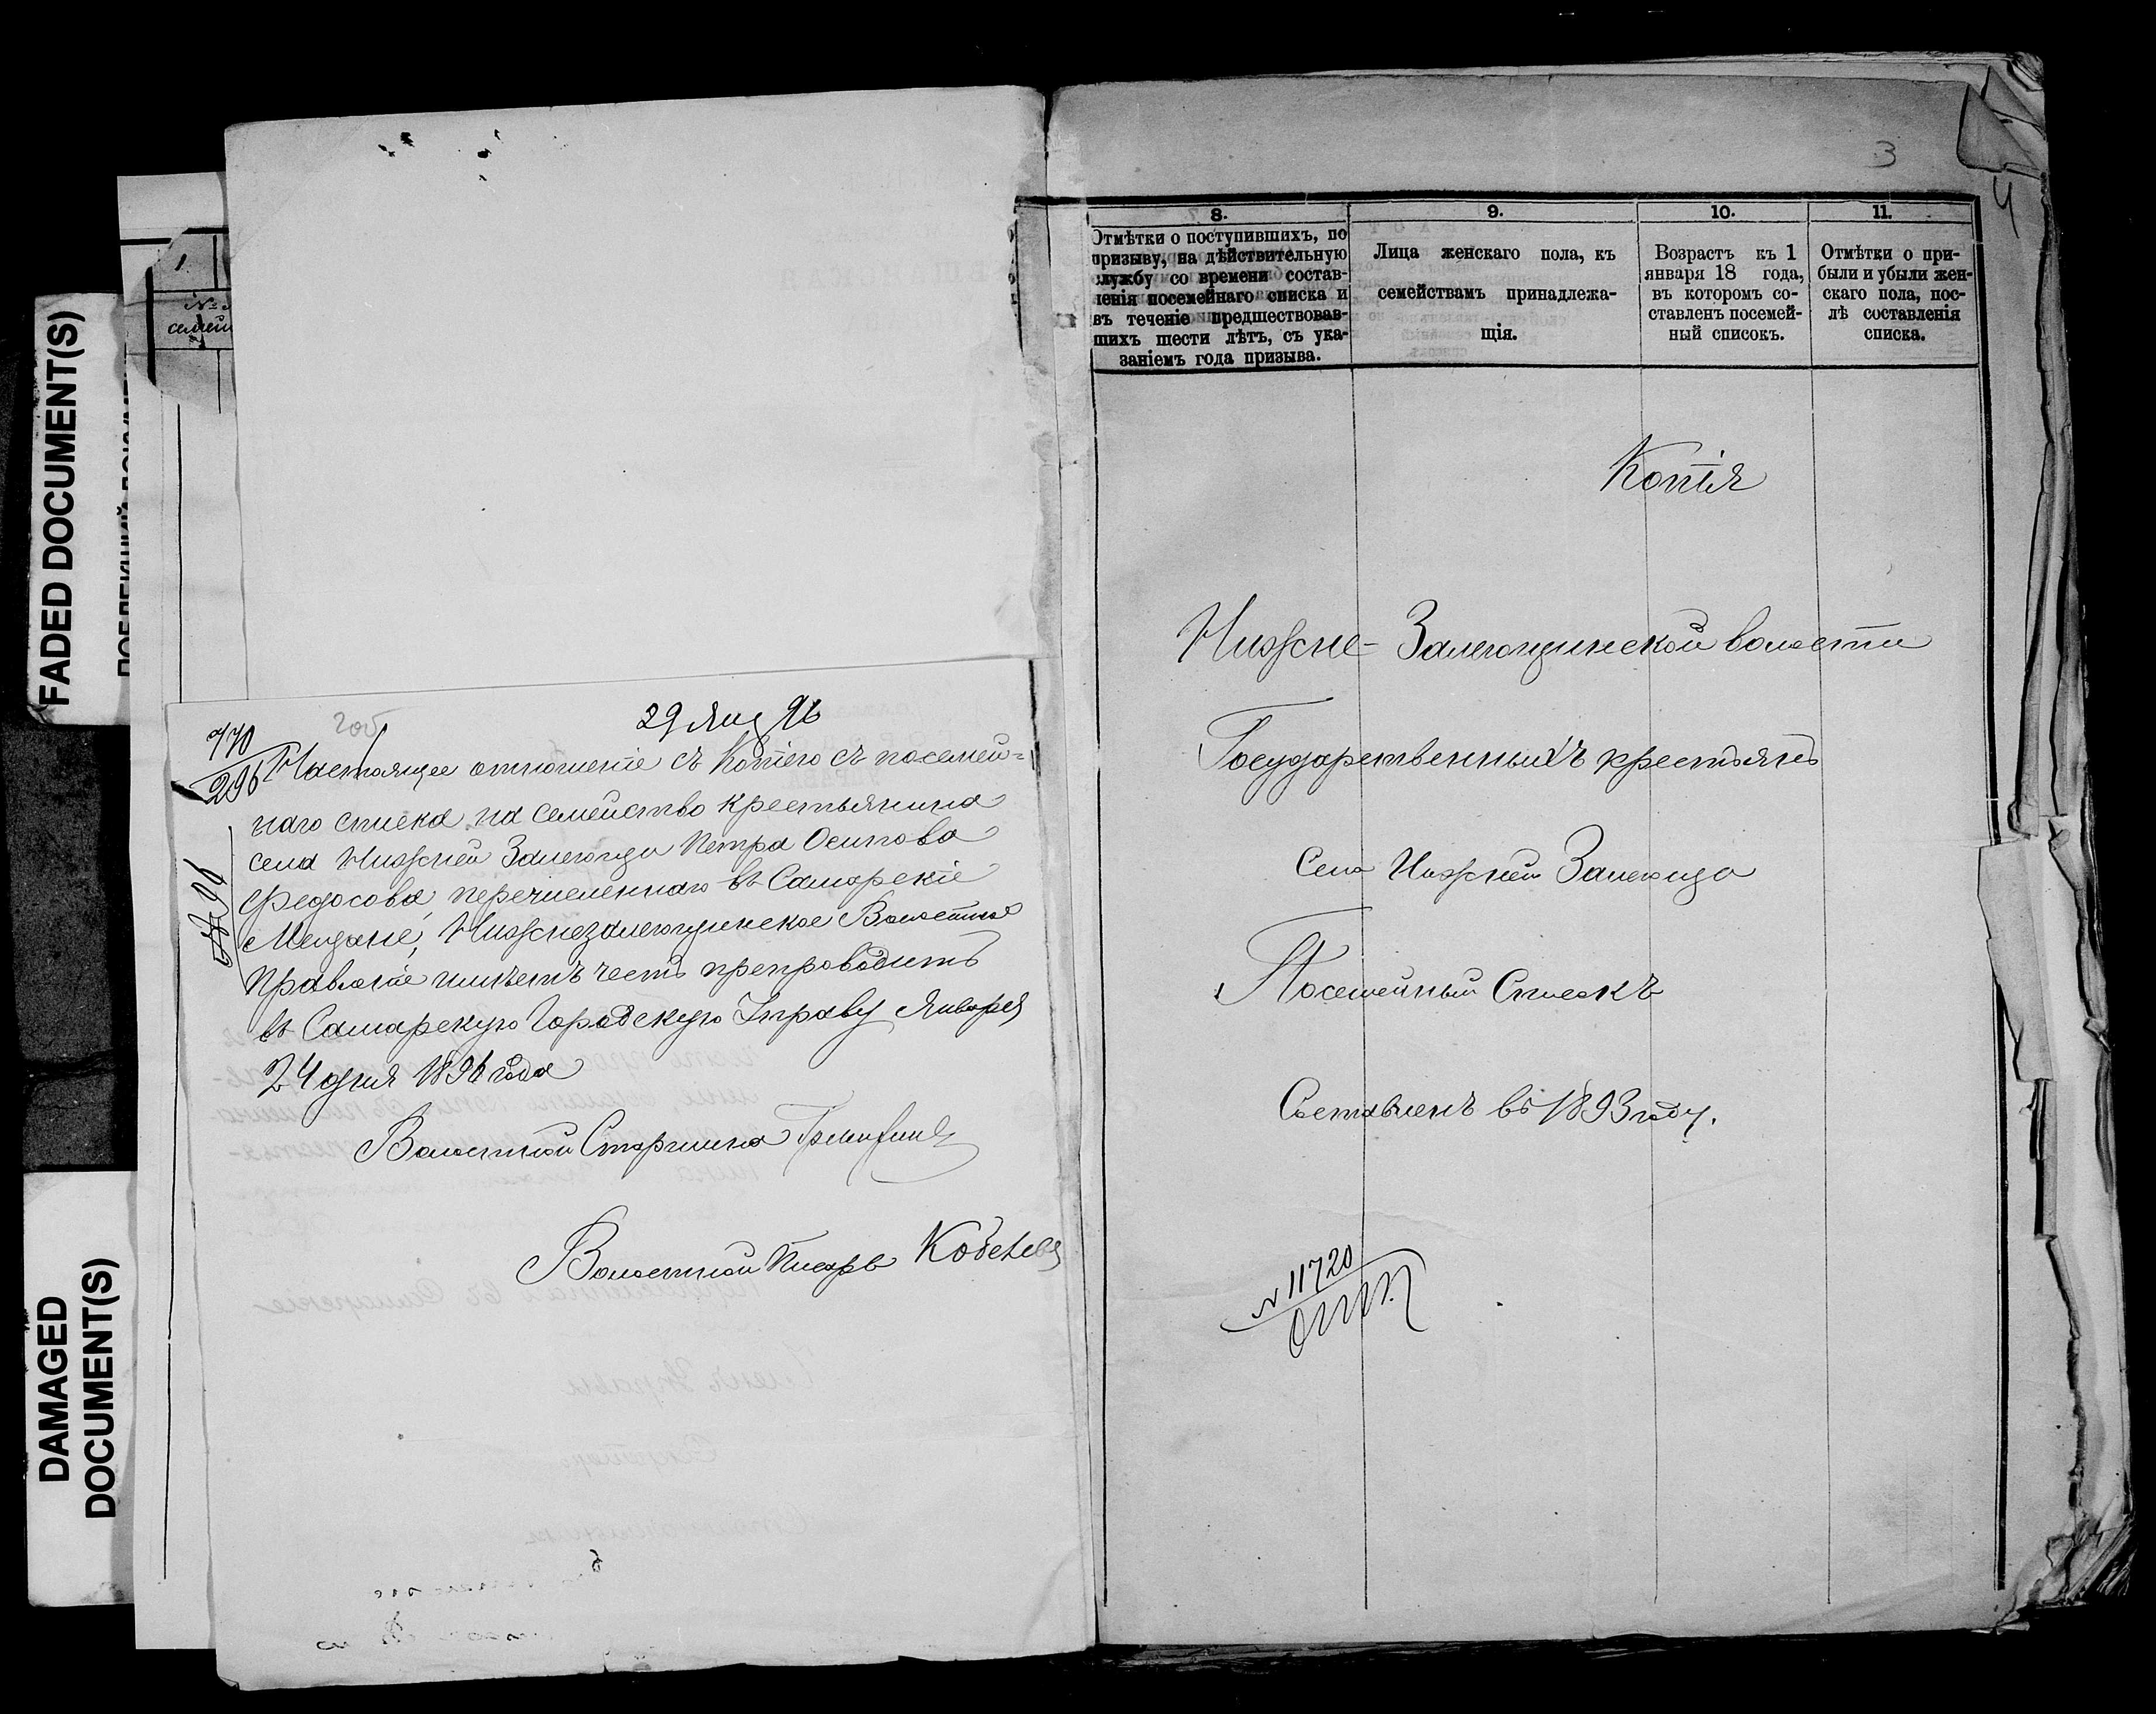 FADED DOCUMENT(S)
DAMAGED
DOCUMENT(S)
1
№
семей
29 Янв 96
770
296
Настоящее отношеніе съ Копіею съ посемей=
наго списка на семейство крестьянина
села Нижней Залегощи Петра Осипова
Федосова, перечисленнаго въ Самарскіе
Мещане, Нижнезалегощинское Волостное
Правленіе имѣетъ честь препроводить
въ Самарскую Городскую Управу Января
24 дня 1896 года
Волостной Старшина
Волостной Писарь Кобелевъ
3
4
8.
Отмѣтки о поступившихъ, по
призыву, на дѣйствительную
службу со времени состав-
ленія посемейнаго списка и
въ теченіе предшествовав-
шихъ шести лѣтъ, съ ука-
заніемъ года призыва.
9.
Лица женскаго пола, къ
семействамъ принадлежа-
щія.
10.
Возрастъ къ 1
января 18 года,
въ которомъ со-
ставленъ посемей-
ный списокъ.
11.
Отмѣтки о при-
были и убыли жен-
скаго пола, пос-
лѣ составленія
списка.
Копія
Нижне-Залегощинской волости
Государственныхъ крестьянъ
Села Нижней Залегощи
Посемейный Списокъ
Составленъ въ 1893 году.
№ 11720